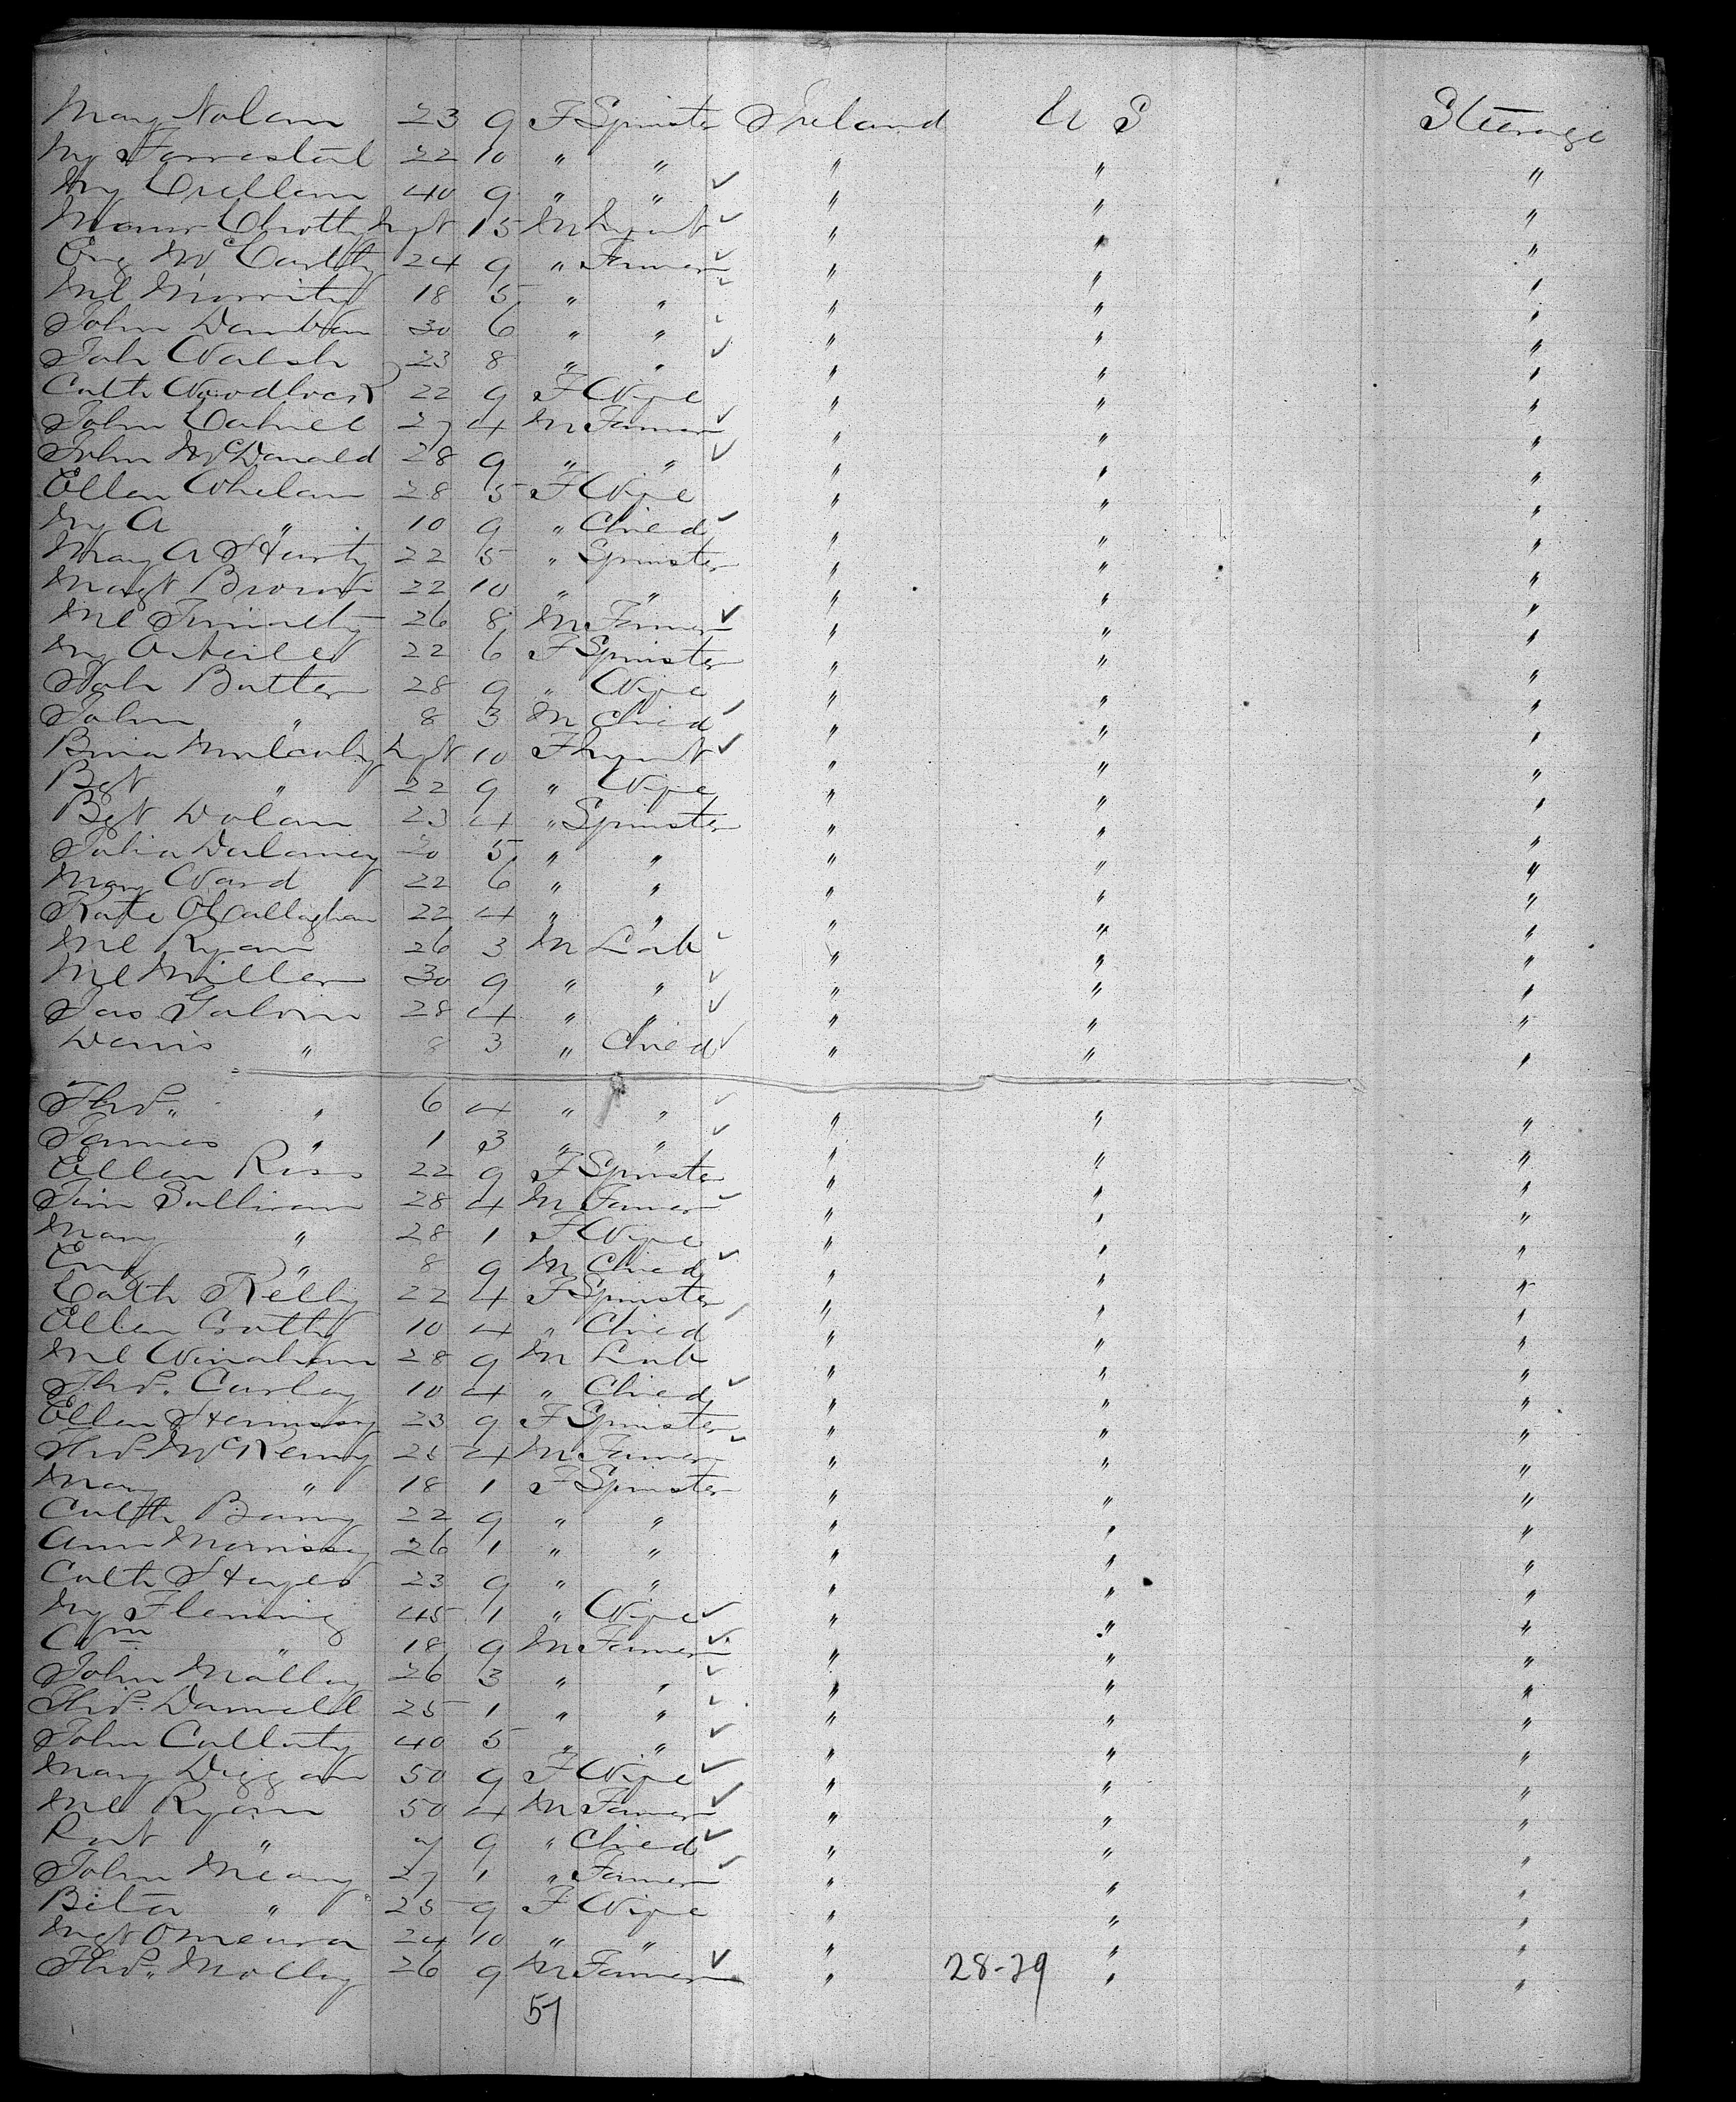 Mary Nolan 23 9 F Spinster Ireland U S Steerage
My Forrestal 22 10 " " " " "
My Crellan 40 9 " " " " "
Chrotty Inft 15 M Infant " " "
Eug McCarthy 24 9 " Farmer " " "
Ml Moriarty 18 5 " " " " "
John 30 6 " " " " "
Joh Walsh 23 8 " " " " "
Cath Woodlock 22 9 F Wife " " "
John Cahill 27 4 M Farmer " " "
John McDonald 28 9 " " " " "
Ellen Whelan 28 5 F Wife " " "
My A " 10 9 " Child " " "
Mary A Harty 22 5 " Spinster " " "
Magt Brown 22 10 " " " " "
Ml Finnelty 26 8 M Farmer " " "
My ONeill 22 6 F Spinster " " "
Joh Butler 28 9 " Wife " " "
John " 8 3 M Child " " "
Mulcahy Inft 10 F Infant " " "
Bgt " 22 9 " Wife " " "
Bgt Dolan 23 4 " Spinster " " "
Julia Dalaney 20 5 " " " " "
Mary Ward 22 6 " " " " "
Kate OCallaghan 22 4 " " " " "
Ml Ryan 26 3 M Lab " " "
Ml Miller 30 9 " " " " "
Jas Galvin 28 4 " " " " "
Denis " 8 3 " Child " " "
Thos " 6 4 " " " " "
James " 1 3 " " " " "
Ellen Ross 22 9 F Spinster " " "
Tim Sullivan 28 4 M Farmer " " "
Mary " 28 1 F Wife " " "
Eug " 8 9 M Child " " "
Cath Kelly 22 4 F Spinster " " "
Ellen Crotty 10 4 " Child " " "
Ml 28 9 M Lab " " "
Thos. Curley 10 4 " Child " " "
Ellen Hennissy 23 9 F Spinster " " "
Thos McKenny 25 4 M Farmer " " "
Mary " 18 1 F Spinster " " "
Cath Barry 22 9 " " " " "
Ann Morrissy 26 1 " " " " "
Cath Hayes 23 9 " " " " "
My Fleming 45 1 " Wife " " "
Wm " 18 9 M Farmer " " "
John Malloy 26 3 " " " " "
Thos. Danniell 25 1 " " " " "
John Cullerty 40 5 " " " " "
Mary Diggan 50 9 F Wife " " "
Ml Ryan 50 4 M Farmer " " "
Robt " 7 9 " Child " " "
John Meany 27 1 " Farmer " " "
" 25 9 F Wife " " "
Mgt Omeara 24 10 " " " " "
Thos. Molloy 26 9 M Farmer " 28-29 " "
57